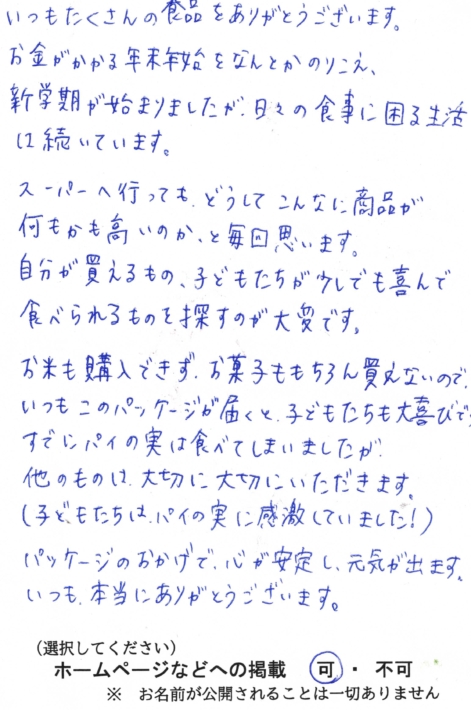 いつもたくさんの食品をありがとうございます。
お金がかかる年末年始をなんとかのりこえ、
新学期が始まりましたが、日々の食事に困る生活
は続いています。
スーパーへ行っても、どうしてこんなに商品が
何もかも高いのか、と毎回思います。
自分が買えるもの、子どもたちが少しでも喜んで
食べられるものを探すのが大変です。
お米も購入できず、お菓子ももちろん買えないので、
いつもこのパッケージが届くと、子どもたちも大喜びで
すでにパイの実は食べてしまいましたが、
他のものは、大切に大切にいただきます。
(子どもたちは、パイの実に感激していました!)
パッケージのおかげで、心が安定し、元気が出ます。
いつも、本当にありがとうございます。
(選択してください)
ホームページなどへの掲載 可 ・ 不可
※ お名前が公開されることは一切ありません